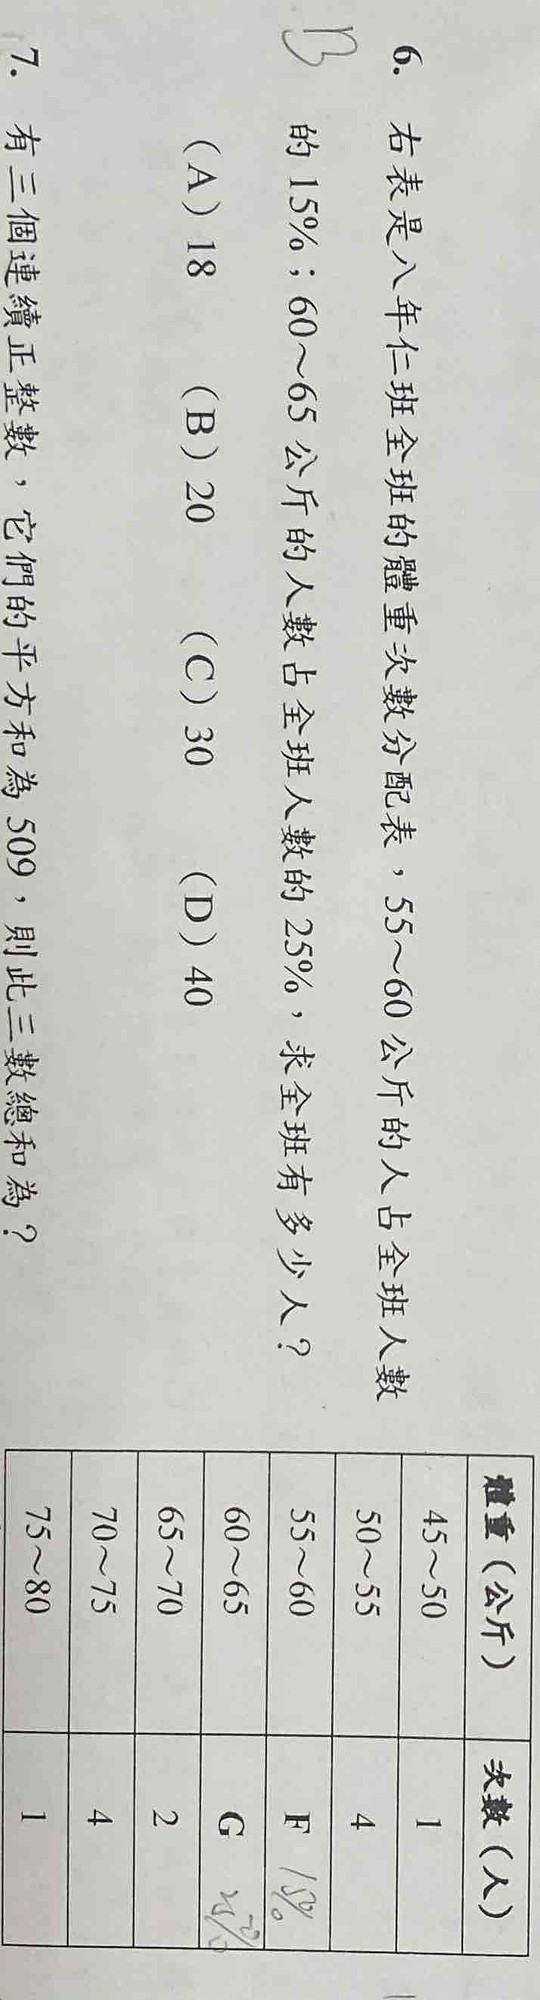 6. 右表是八年仁班全班的體重次數分配表，55～60 公斤的人占全班人數
B 的 15%；60～65 公斤的人數占全班人數的 25%，求全班有多少人？
(A) 18 (B) 20 (C) 30 (D) 40
體重（公斤） 次數（人）
45～50 1
50～55 4
55～60 F 15%
60～65 G 25%
65～70 2
70～75 4
75～80 1
7. 有三個連續正整數，它們的平方和為 509，則此三數總和為？